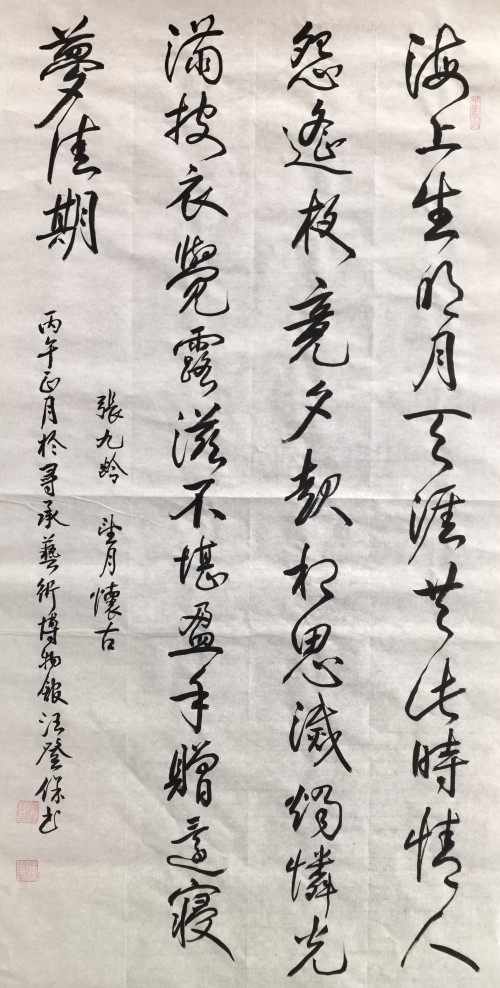 海上生明月天涯共此時情人
怨遙夜竟夕起相思滅燭憐光
滿披衣覺露滋不堪盈手贈還寢
夢佳期
張九齡 望月懷古
丙午正月於尋承藝術博物館汪登保書